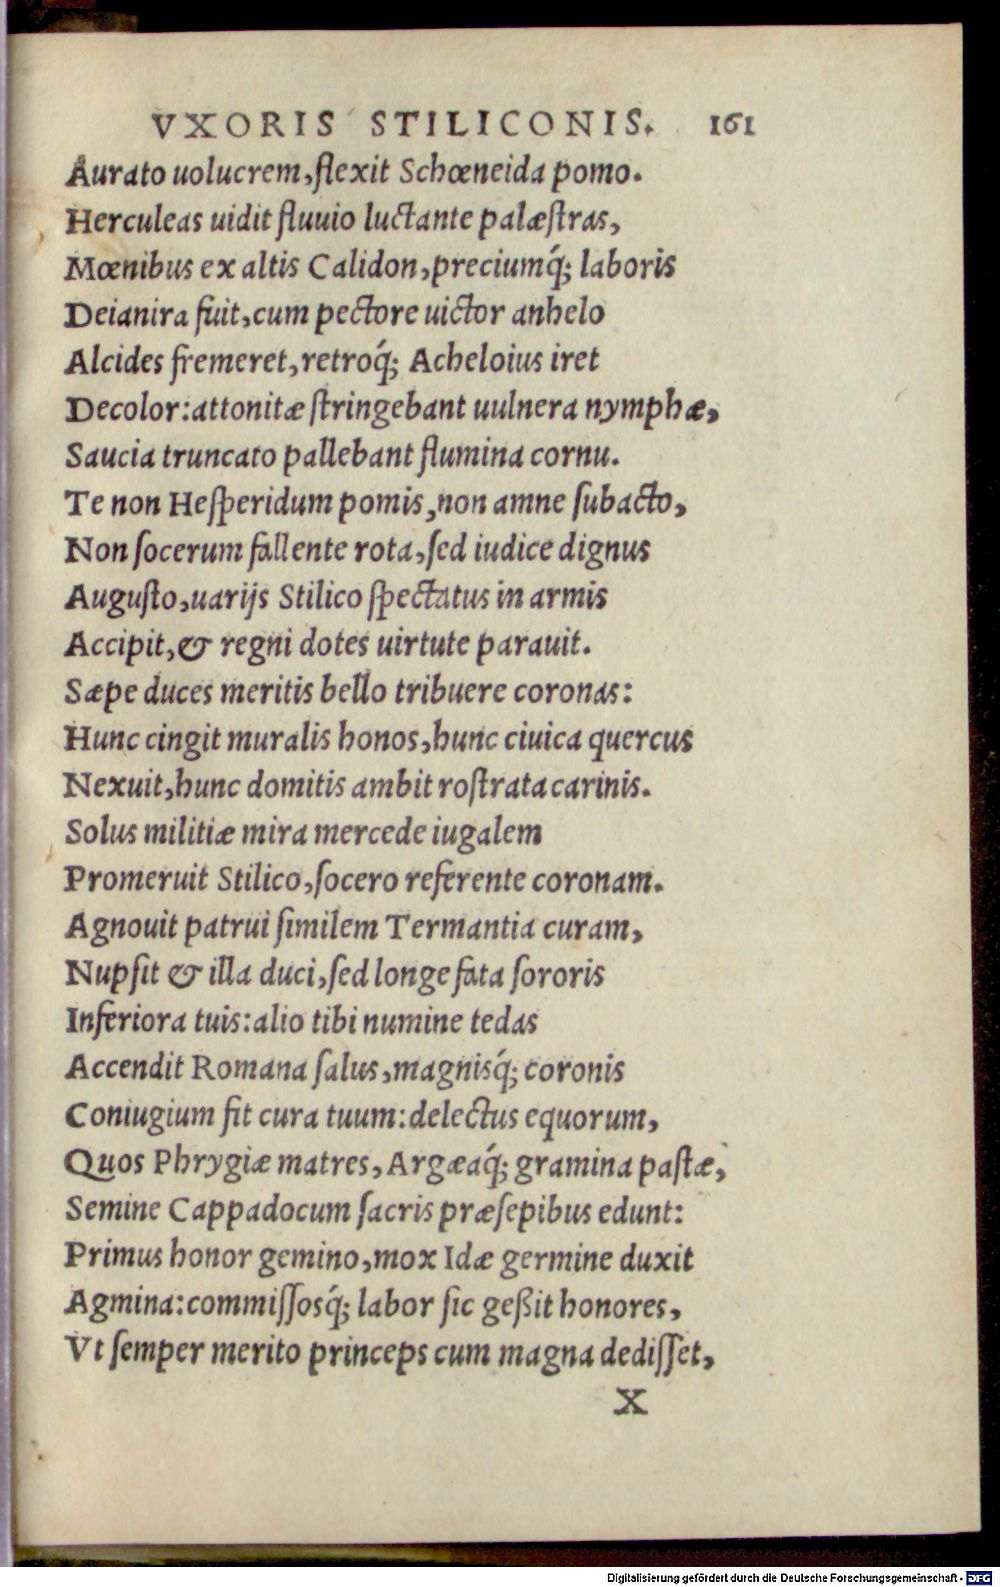 VXORIS STILICONIS. 161
Aurato uolucrem, flexit Schœneida pomo.
Herculeas uidit fluuio luctante palæſtras,
Mœnibus ex altis Calidon, preciumq́; laboris
Deianira fuit, cum pectore uictor anhelo
Alcides fremeret, retroq́; Acheloius iret
Decolor: attonitæ ſtringebant uulnera nymphæ,
Saucia truncato pallebant flumina cornu.
Te non Heſperidum pomis, non amne ſubacto,
Non ſocerum fallente rota, ſed iudice dignus
Auguſto, uarijs Stilico ſpectatus in armis
Accipit, & regni dotes uirtute parauit.
Sæpe duces meritis bello tribuere coronas:
Hunc cingit muralis honos, hunc ciuica quercus
Nexuit, hunc domitis ambit roſtrata carinis.
Solus militiæ mira mercede iugalem
Promeruit Stilico, ſocero referente coronam.
Agnouit patrui ſimilem Termantia curam,
Nupſit & illa duci, ſed longe fata ſororis
Inferiora tuis: alio tibi numine tedas
Accendit Romana ſalus, magnisq́; coronis
Coniugium fit cura tuum: delectus equorum,
Quos Phrygiæ matres, Argæaq́; gramina paſtæ,
Semine Cappadocum ſacris præſepibus edunt:
Primus honor gemino, mox Idæ germine duxit
Agmina: commiſſosq́; labor ſic geßit honores,
Vt ſemper merito princeps cum magna dediſſet,
X
Digitalisierung gefördert durch die Deutsche Forschungsgemeinschaft - DFG